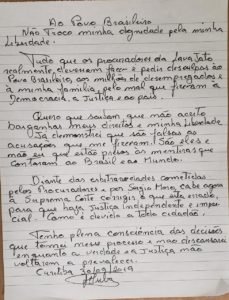 Ao Povo Brasileiro
Não Troco minha dignidade pela minha
Liberdade.
Tudo que os procuradores da Lava Jato
realmente deveriam fazer é pedir desculpas ao
Povo Brasileiro, aos milhões de desempregados e
à minha família, pelo mal que fizeram à
Democracia, à Justiça e ao país.
Quero que saibam que não aceito
barganhar meus direitos e minha Liberdade.
Já demonstrei que são falsas as
acusações que me fizeram. São eles e
não eu que estão presos às mentiras que
contaram ao Brasil e ao Mundo.
Diante das arbitrariedades cometidas
pelos Procuradores e por Sergio Moro, cabe agora
à Suprema Corte corrigir o que está errado,
para que haja Justiça independente e impar-
cial. Como é devido a todo cidadão.
Tenho plena consciência das decisões
que tomei neste processo e não descansarei
enquanto a verdade e a Justiça não
voltarem a prevalecer.
Curitiba 30/09/2019
Lula